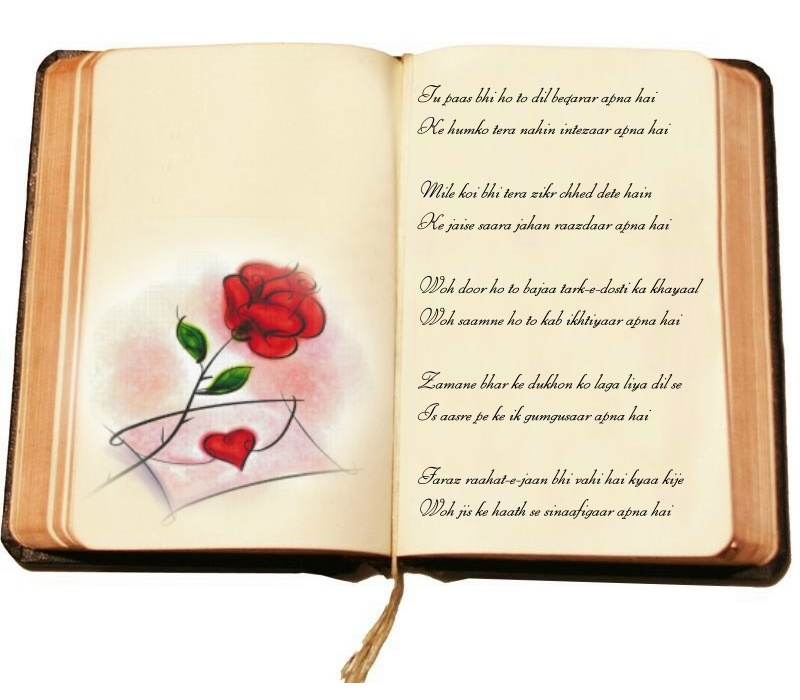 Tu paas bhi ho to dil beqarar apna hai
Ke humko tera nahin intezaar apna hai
Mile koi bhi tera zikr chhed dete hain
Ke jaise saara jahan raazdaar apna hai
Woh door ho to bajaa tark-e-dosti ka khayaal
Woh saamne ho to kab ikhtiyaar apna hai
Zamane bhar ke dukhon ko laga liya dil se
Is aasre pe ke ik gumgusaar apna hai
Faraz raahat-e-jaan bhi vahi hai kyaa kije
Woh jis ke haath se sinaafigaar apna hai